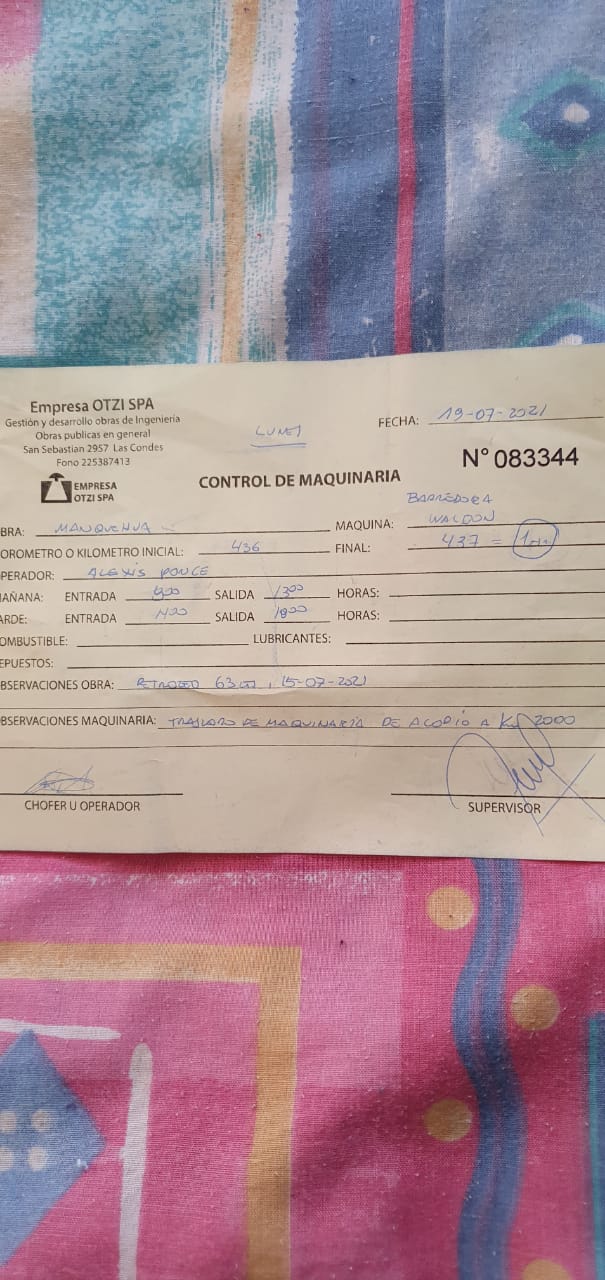 Empresa OTZI SPA
Gestión y desarrollo obras de Ingeniería
Obras publicas en general
San Sebastian 2957 Las Condes
Fono 225387413
EMPRESA
OTZI SPA
LUNES
FECHA: 19-07-2021
N° 083344
CONTROL DE MAQUINARIA
BARREDORA
BRA: MANQUEHUA MAQUINA: WALDON
OROMETRO O KILOMETRO INICIAL: 436 FINAL: 437 =
PERADOR: ALEXIS PONCE
AÑANA: ENTRADA 900 SALIDA 1300 HORAS:
ARDE: ENTRADA 1400 SALIDA 1800 HORAS:
OMBUSTIBLE: LUBRICANTES:
EPUESTOS:
BSERVACIONES OBRA: 15-07-2021
BSERVACIONES MAQUINARIA: TRASLADO DE MAQUINARIA DE ACOPIO A 2000
CHOFER U OPERADOR
SUPERVISOR